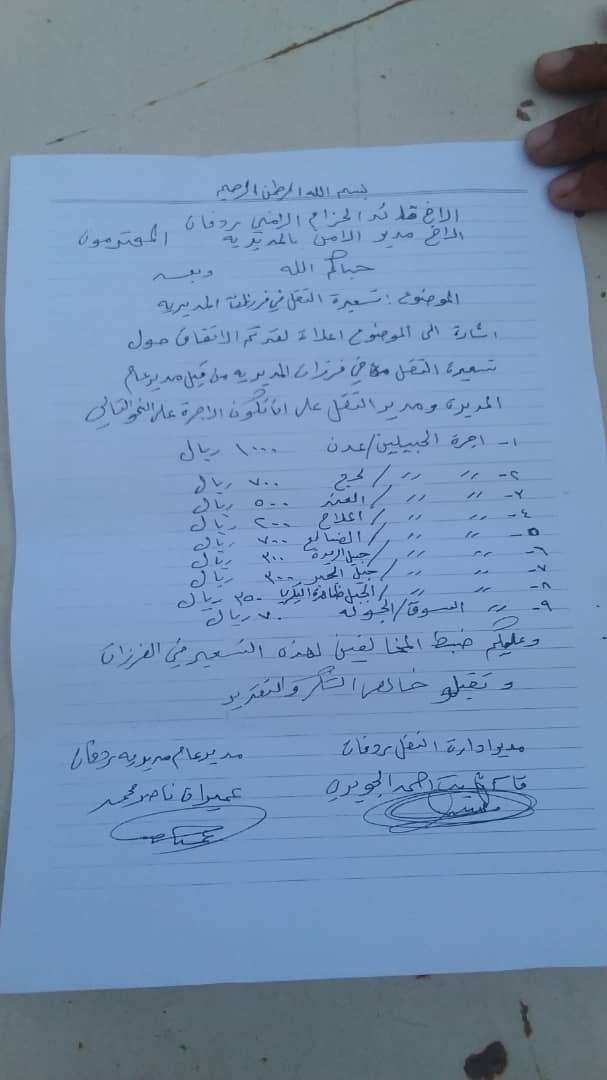 بسم الله الرحمن الرحيم
الاخ قائد الحزام الامني ردفان
الاخ مدير الامن بالمديرية المحترمون
حياكم الله وبعد
الموضوع : تسعيرة النقل في فرزات المديريه
اشارة الى الموضوع اعلاة لقد تم الاتفاق حول
تسعيرة النقل في فرزات المديريه من قبل مدير عام
المديرية ومدير النقل على ان تكون الاجرة على النحو التالي
١- اجرة الحبيلين/عدن ١٠٠٠ ريال
٢- ״ ״ / لحج ٧٠٠ ريال
٣- ״ ״ / العند ٥٠٠ ريال
٤- ״ ״ / ٢٠٠ ريال
٥- ״ ״ / الضالع ٧٠٠ ريال
٦- ״ ״ / حبيل الريدة ٣٠٠ ريال
٧- ״ ״ / حبيل ٣٠٠ ريال
٨- ״ ״ / ٣٥٠ ريال
٩- ״ السوق/الجوله ٧٠ ريال
وعليكم ضبط المخالفين لهذه التسعيره في الفرزات
وتقبلو خالص الشكر والتقدير
مدير ادارة النقل ردفان مدير عام مديريه ردفان
قاسم ثابت احمد ناصر محمد